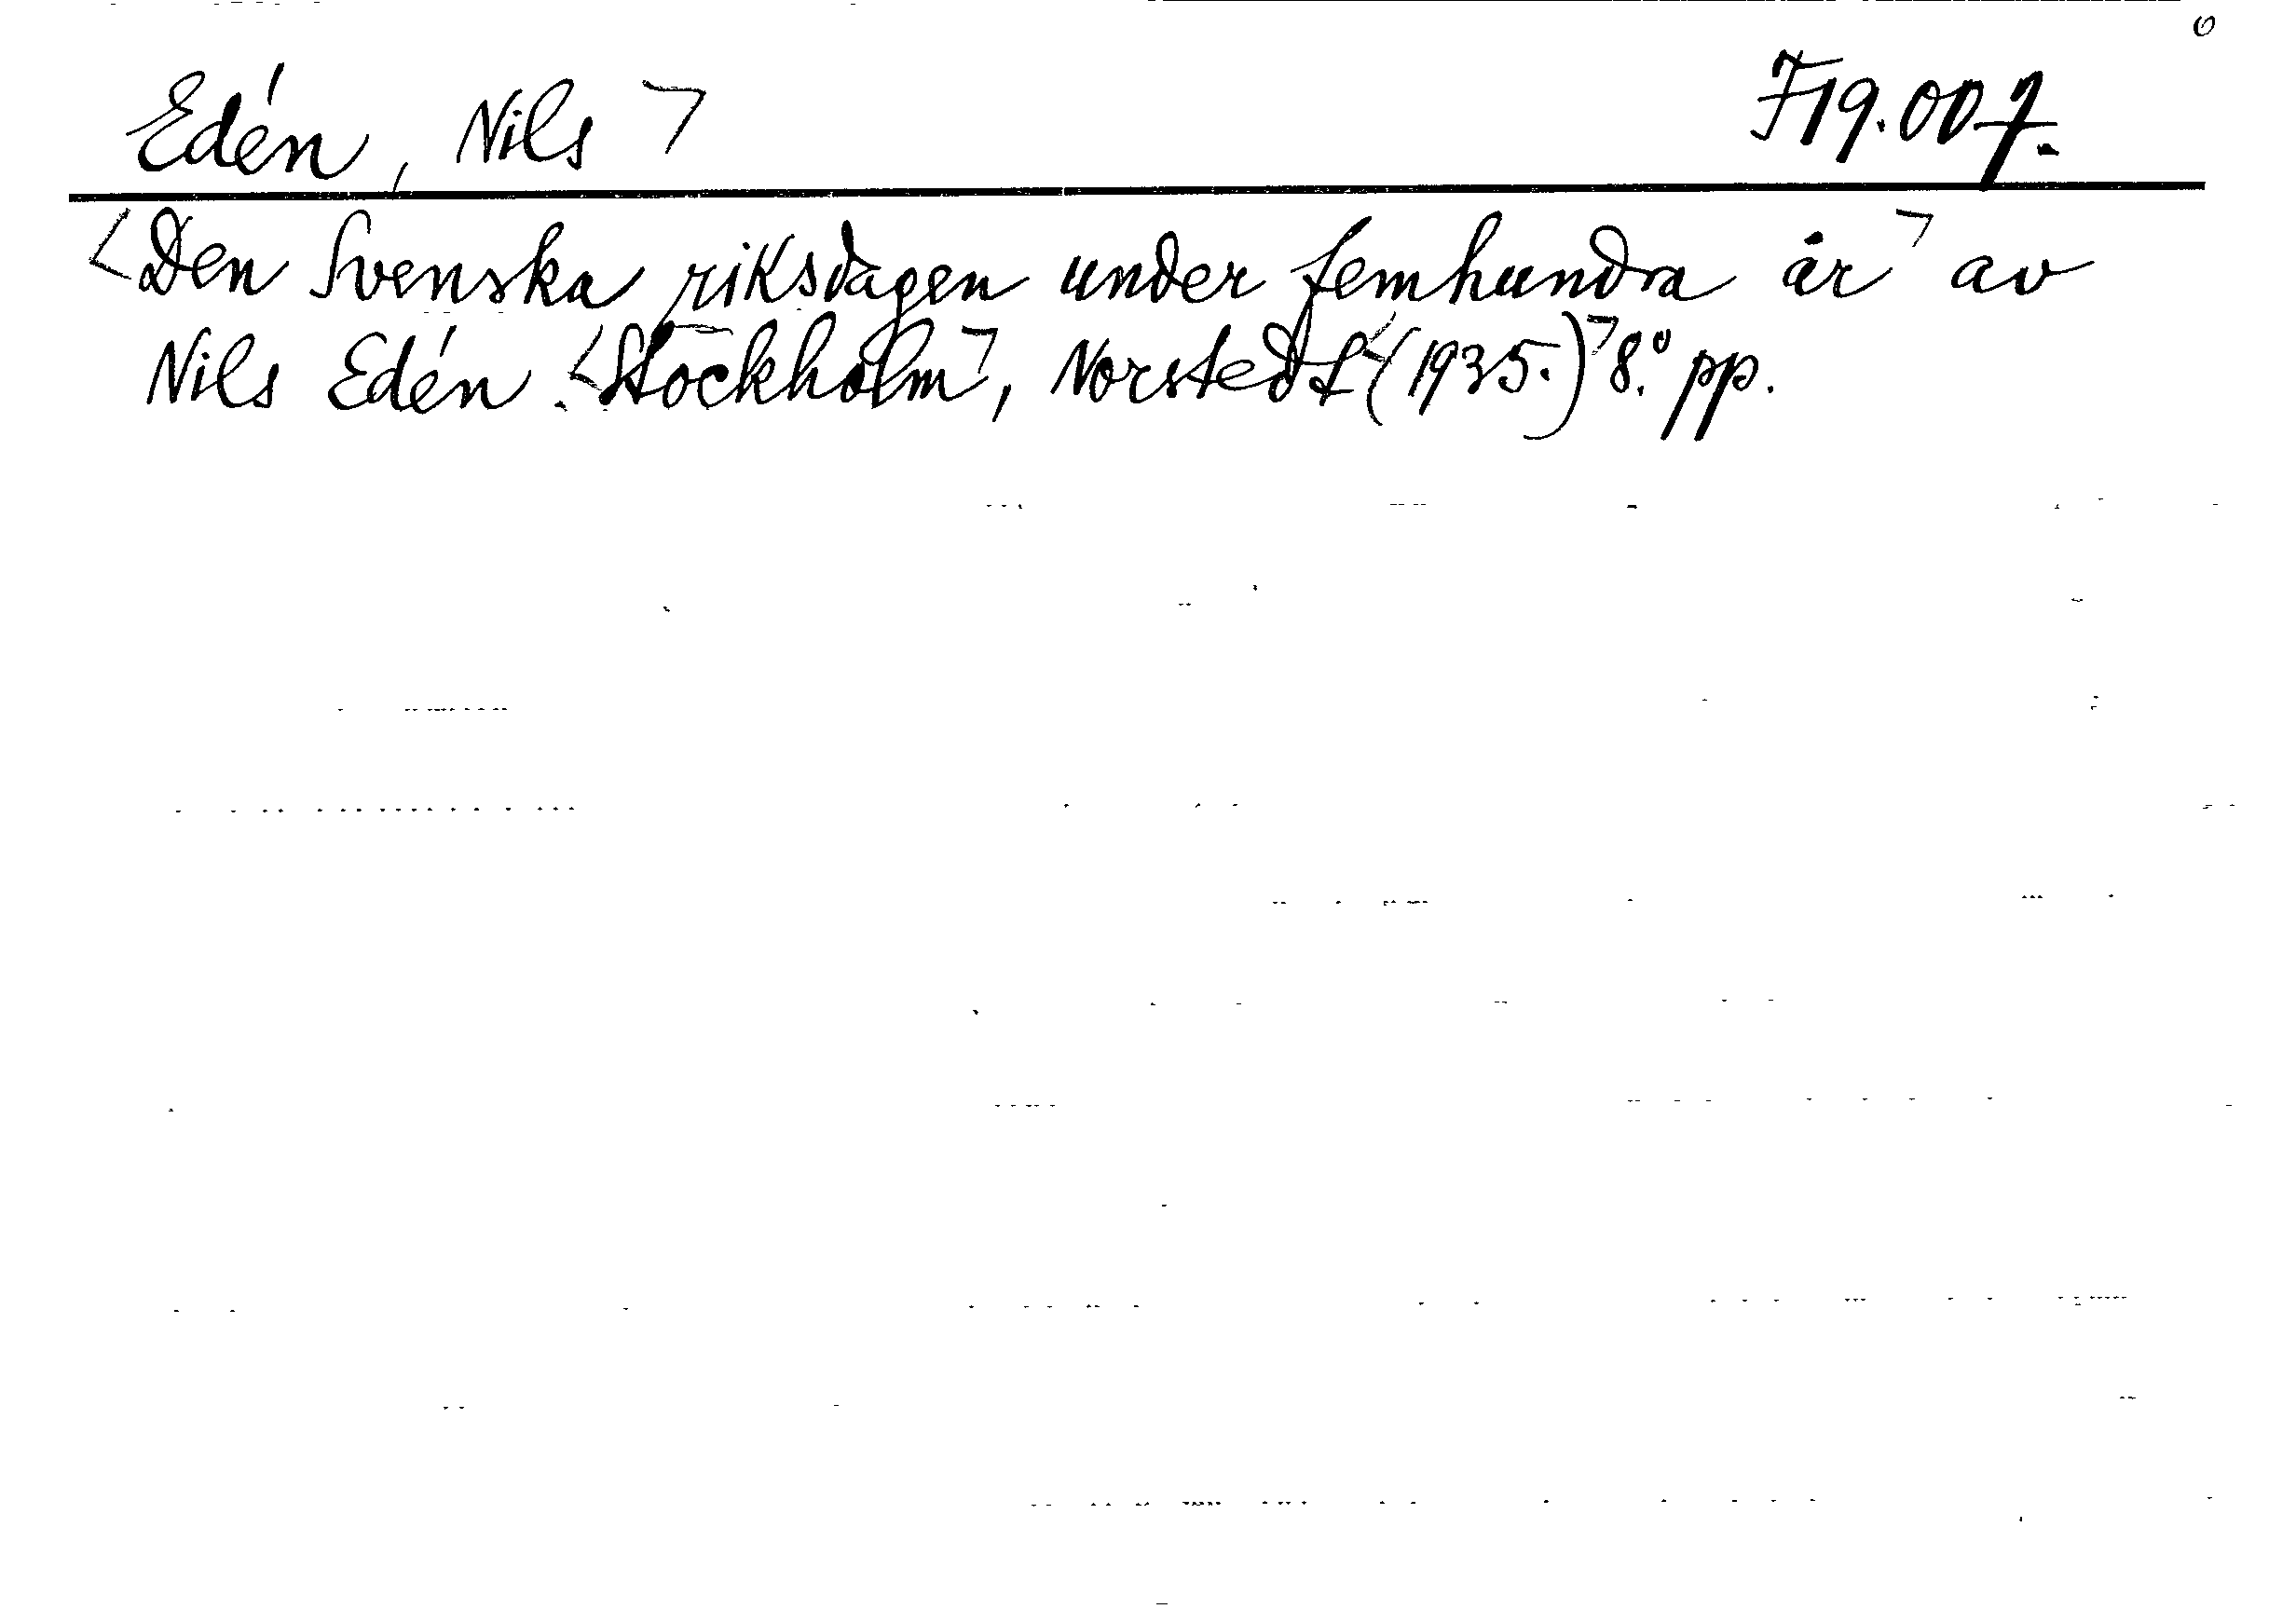 Edén, Nils ㄱ 719.007.
<Den Svenska riksdagen under femhundra år ㄱ av
Nils Edén. <Stockholm ㄱ, Norstedt <(1935.) ㄱ 8.º pp.